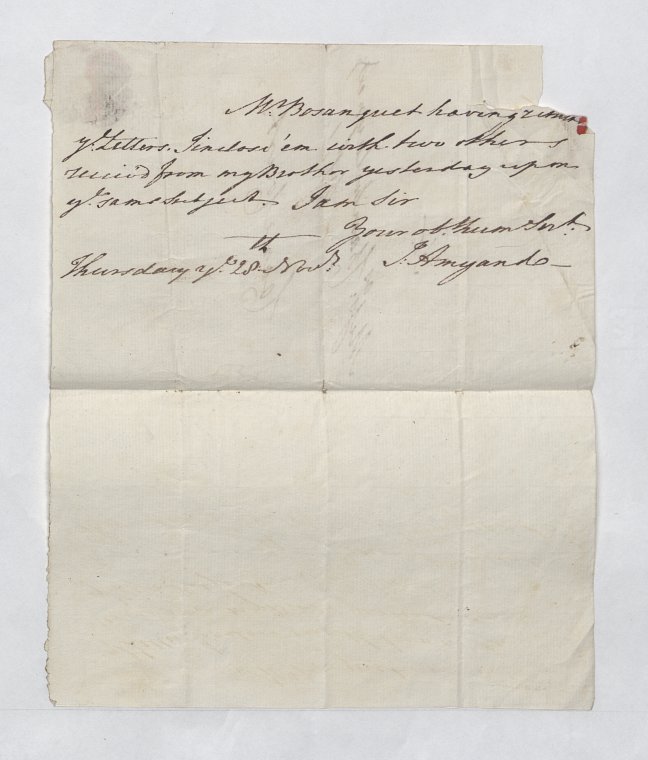 Mr. Bosanquet having
ye. Letters. I inclose 'em with two others
receiv'd from my Brother yesterday upon
ye. same Subject I am Sir
Your ob. hum. Servt.
Thursday ye. 28th Novr.
J. Amyand